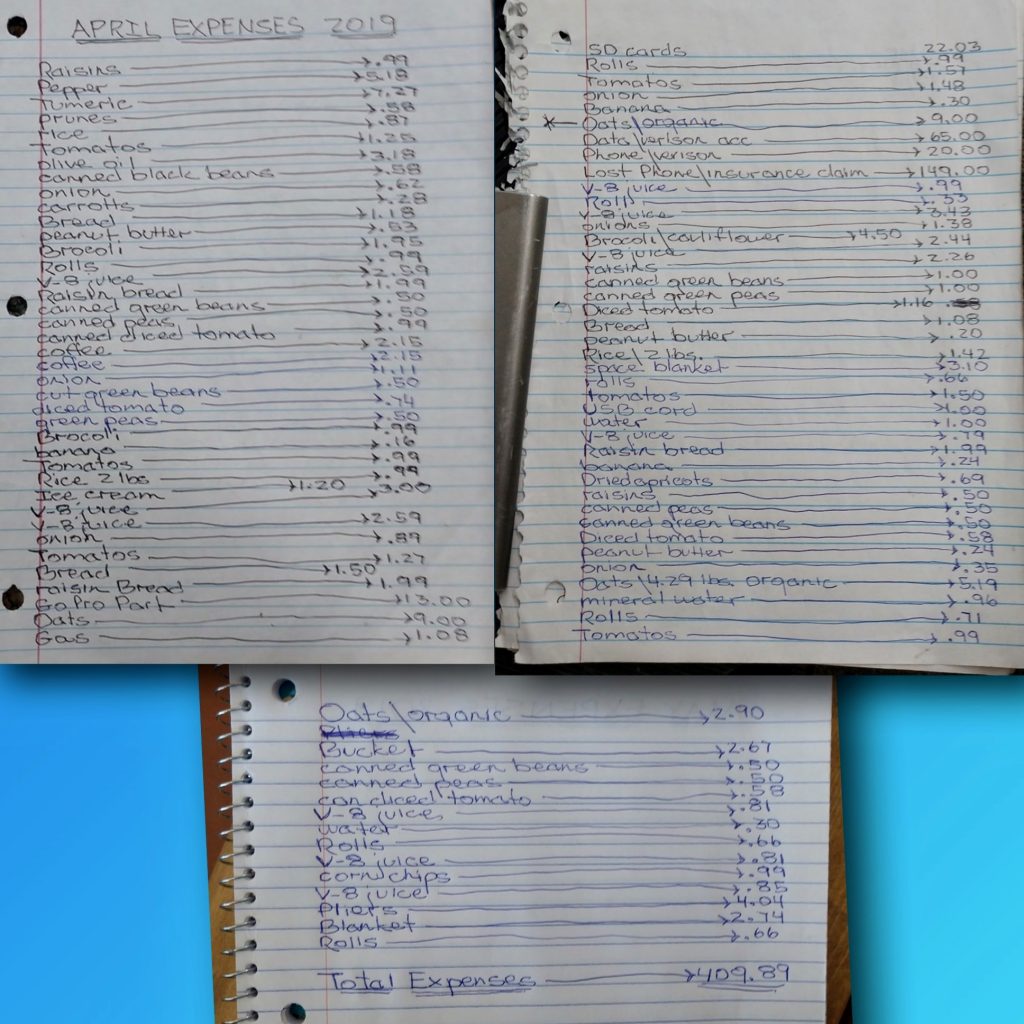 APRIL EXPENSES 2019
Raisins → .99
Pepper → 5.18
Tumeric
prunes → .58
rice → .87
Tomatos → 1.25
olive oil → 3.18
canned black beans → .58
onion → .62
carrotts → .28
Bread → 1.18
peanut butter → .53
Brocoli → 1.95
Rolls → .99
V-8 juice → 2.59
Raisin bread → 1.99
canned green beans → .50
canned peas → .50
canned diced tomato → .99
coffee → 2.15
coffee → 2.15
onion → 1.11
cut green beans → .50
diced tomato → .74
green peas → .50
Brocoli → .99
banana → .16
Tomatos → .99
Rice 2 lbs → .99
Ice cream → 1.20
V-8 juice → 3.00
V-8 juice → 2.59
onion → .89
Tomatos → 1.27
Bread → 1.50
raisin Bread → 1.99
GoPro Part → 13.00
Oats → 9.00
Gas → 1.08
SD cards 22.03
Rolls → .99
Tomatos → 1.57
onion → 1.48
Banana → .30
* Oats\organic → 9.00
Data\verison acc → 65.00
Phone\verison → 20.00
Lost Phone\insurance claim → 149.00
V-8 juice → .99
Rolls → .33
V-8 juice → 3.43
onions → 1.38
Brocoli/cauliflower → 4.50
V-8 juice → 2.44
raisins → 2.26
canned green beans → 1.00
canned green peas → 1.00
Diced tomato → 1.16
Bread → 1.08
peanut butter → .20
Rice\2 lbs. → 1.42
space blanket → 3.10
rolls → .66
tomatos → 1.50
USB cord → 1.00
water → 1.00
V-8 juice → .79
Raisin bread → 1.99
banana → .24
Dried apricots → .69
raisins → .50
canned peas → .50
canned green beans → .50
Diced tomato → .58
peanut butter → .24
onion → .35
Oats\4.29 lbs. organic → 5.19
mineral water → .96
Rolls → .71
Tomatos → .99
Oats\organic → 2.90
Pliers
Bucket → 2.67
canned green beans → .50
canned peas → .50
can diced tomato → .58
V-8 juice → .81
water → .30
Rolls → .66
V-8 juice → .81
corn chips → .99
V-8 juice → .85
Pliers → 4.04
Blanket → 2.74
Rolls → .66
Total Expenses → 409.89